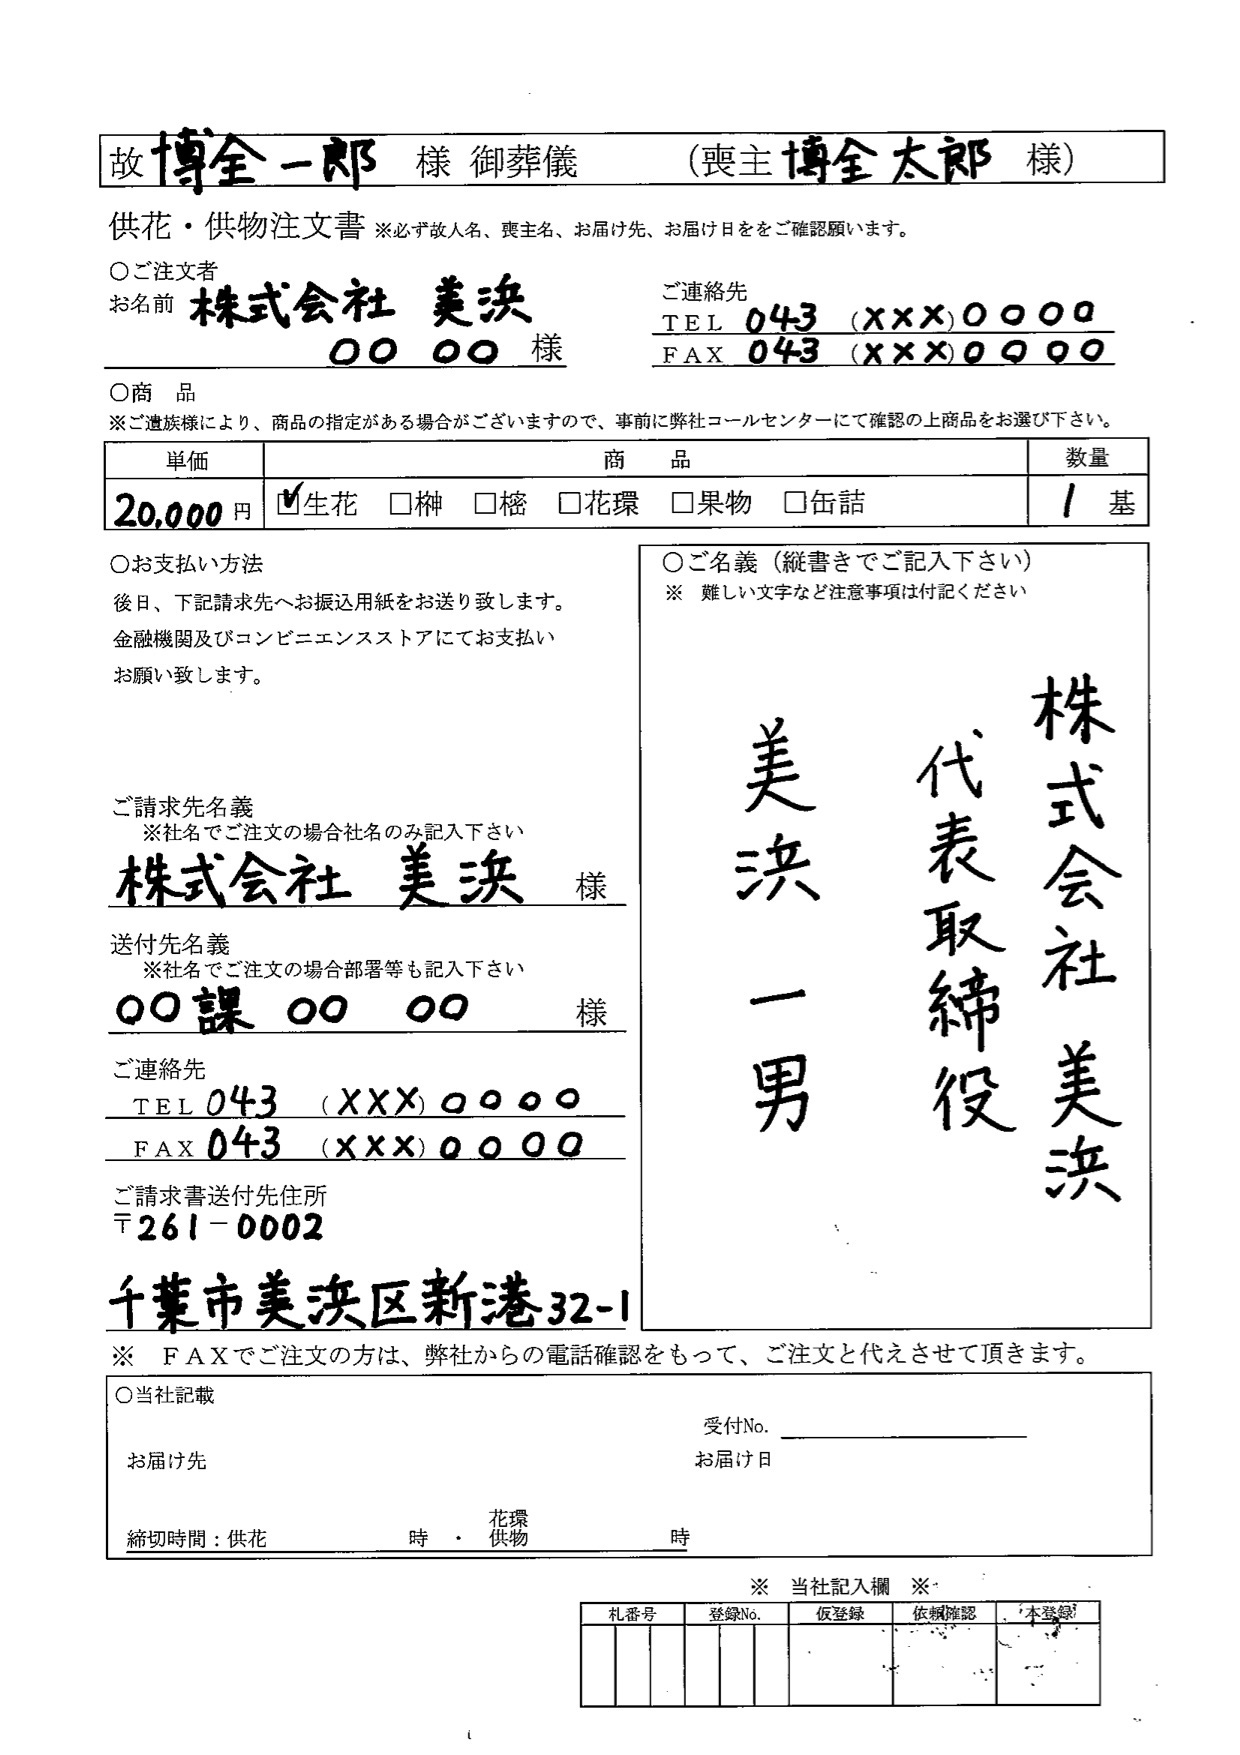 故 博全 一郎 様 御葬儀 （喪主 博全 太郎 様）
供花・供物注文書 ※必ず故人名、喪主名、お届け先、お届け日ををご確認願います。
〇ご注文者
お名前 株式会社 美浜
〇〇 〇〇 様
ご連絡先
ＴＥＬ 043 （XXX）0000
ＦＡＸ 043 （XXX）0000
〇商 品
※ご遺族様により、商品の指定がある場合がございますので、事前に弊社コールセンターにて確認の上商品をお選び下さい。
単価 商 品 数量
20,000 円 ☑生花 □榊 □樒 □花環 □果物 □缶詰 1 基
〇お支払い方法
後日、下記請求先へお振込用紙をお送り致します。
金融機関及びコンビニエンスストアにてお支払い
お願い致します。
ご請求先名義
※社名でご注文の場合社名のみ記入下さい
株式会社 美浜 様
送付先名義
※社名でご注文の場合部署等も記入下さい
〇〇課 〇〇 〇〇 様
ご連絡先
ＴＥＬ 043 （XXX）0000
ＦＡＸ 043 （XXX）0000
ご請求書送付先住所
〒261－0002
千葉市美浜区新港32-1
〇ご名義（縦書きでご記入下さい）
※ 難しい文字など注意事項は付記ください
株式会社 美浜
代表取締役
美浜 一男
※ ＦＡＸでご注文の方は、弊社からの電話確認をもって、ご注文と代えさせて頂きます。
〇当社記載
受付No.
お届け先 お届け日
締切時間：供花 時 ・ 花環 供物 時
※ 当社記入欄 ※
札番号 登録No. 仮登録 依頼確認 本登録